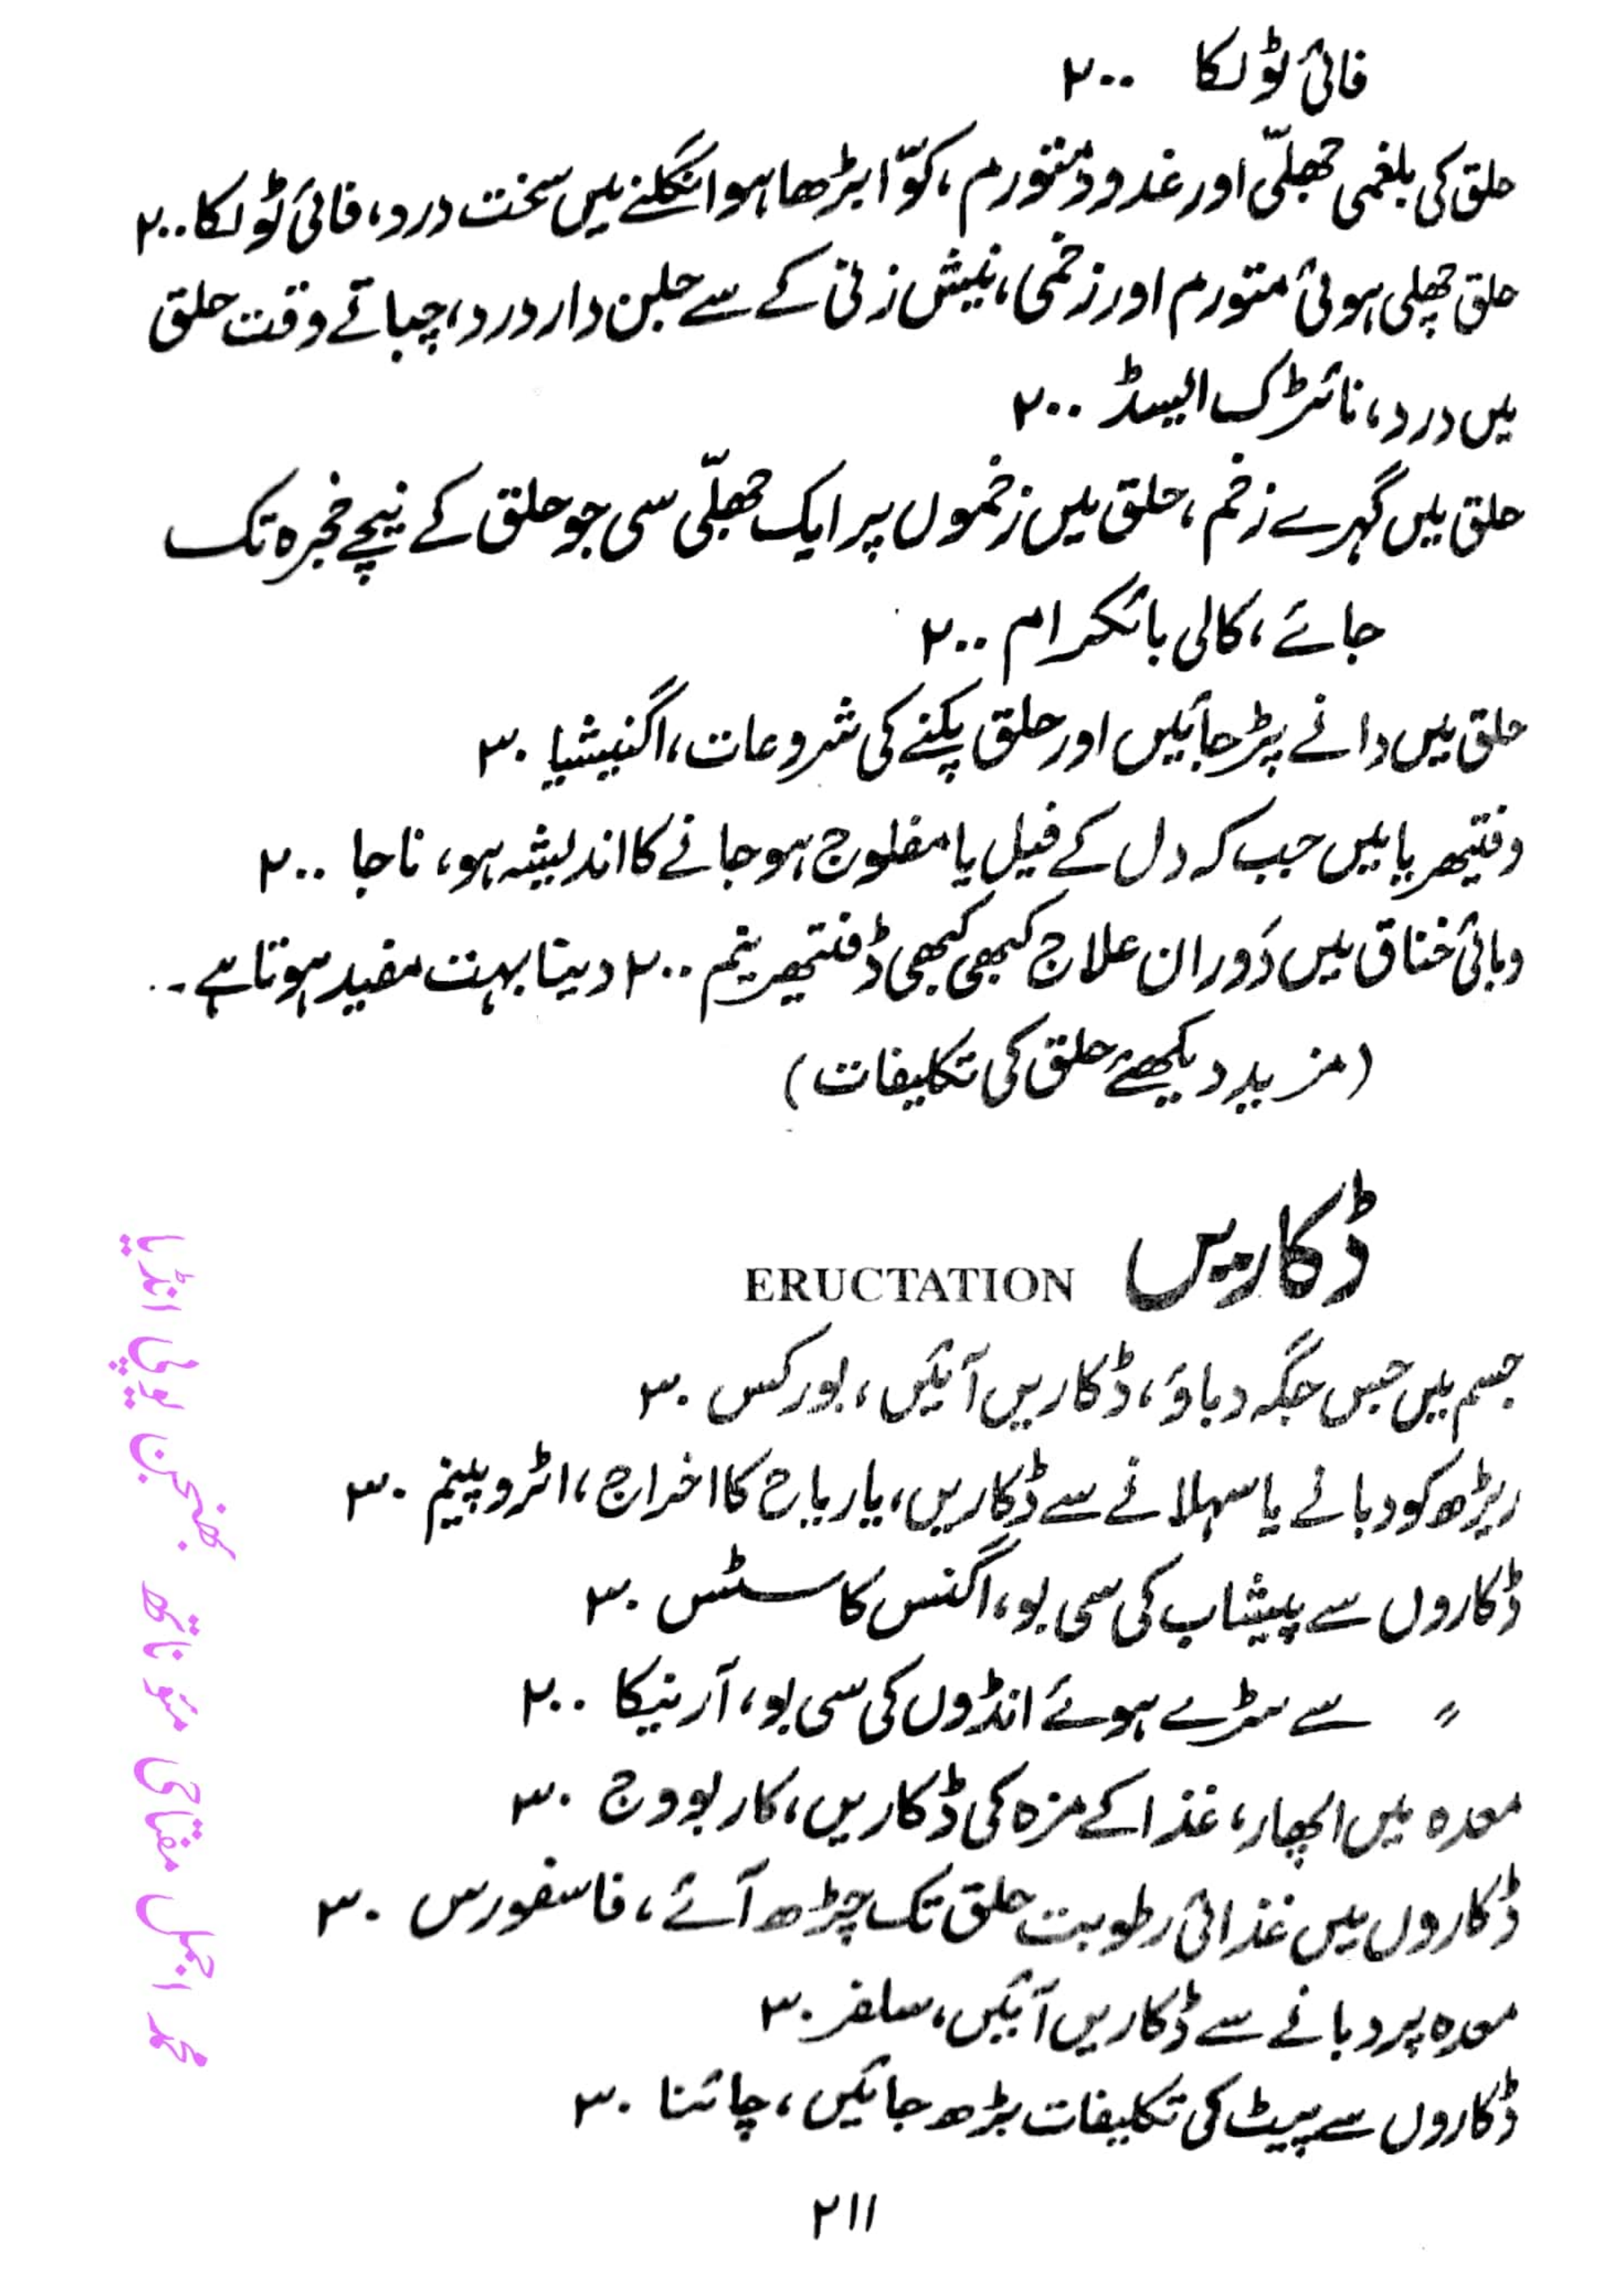 فائی ٹولکا ۲۰۰
حلق کی بلغمی جھلّی اور غدود متورم، کوّا بڑھا ہوا نگلنے میں سخت درد، فائی ٹولکا ۲۰۰
حلق چھلی ہوئی متورم اور زخمی، نیش زنی کے سے جلن دار درد، چبانے وقت حلق
میں درد، نائٹرک ایسڈ ۲۰۰
حلق میں گہرے زخم، حلق میں زخموں پر ایک جھلّی سی جو حلق کے نیچے خجرہ تک
جائے، کالی بائکرام ۲۰۰
حلق میں دانے پڑ جائیں اور حلق پکنے کی شروعات، اگنیشیا ۳۰
دفتیھریا میں جب کہ دل کے فیل یا مفلوج ہو جانے کا اندیشہ ہو، ناجا ۲۰۰
وبائی خناق میں دَوران علاج کبھی کبھی ڈفتھیرینم ۲۰۰ دینا بہت مفید ہوتا ہے۔
(مزید دیکھئے حلق کی تکلیفات)
ڈکاریں ERUCTATION
جسم میں جس جگہ دباؤ، ڈکاریں آئیں، بورکس ۳۰
ریڑھ کو دبانے یا سہلانے سے ڈکاریں، یا ریاح کا اخراج، اٹروپینم ۳۰
ڈکاروں سے پیشاب کی سی بو، اگنس کاسٹس ۳۰
〃 سے سڑے ہوئے انڈوں کی سی بو، آرنیکا ۲۰۰
معدہ میں اپھار، غذا کے مزہ کی ڈکاریں، کاربووج ۳۰
ڈکاروں میں غذائی رطوبت حلق تک چڑھ آئے، فاسفورس ۳۰
معدہ پر دبانے سے ڈکاریں آئیں، سلفر ۳۰
ڈکاروں سے پیٹ کی تکلیفات بڑھ جائیں، چائنا ۳۰
۲۱۱
محمد اجمل مفتاحی مئو ناتھ بھنجن یوپی انڈیا